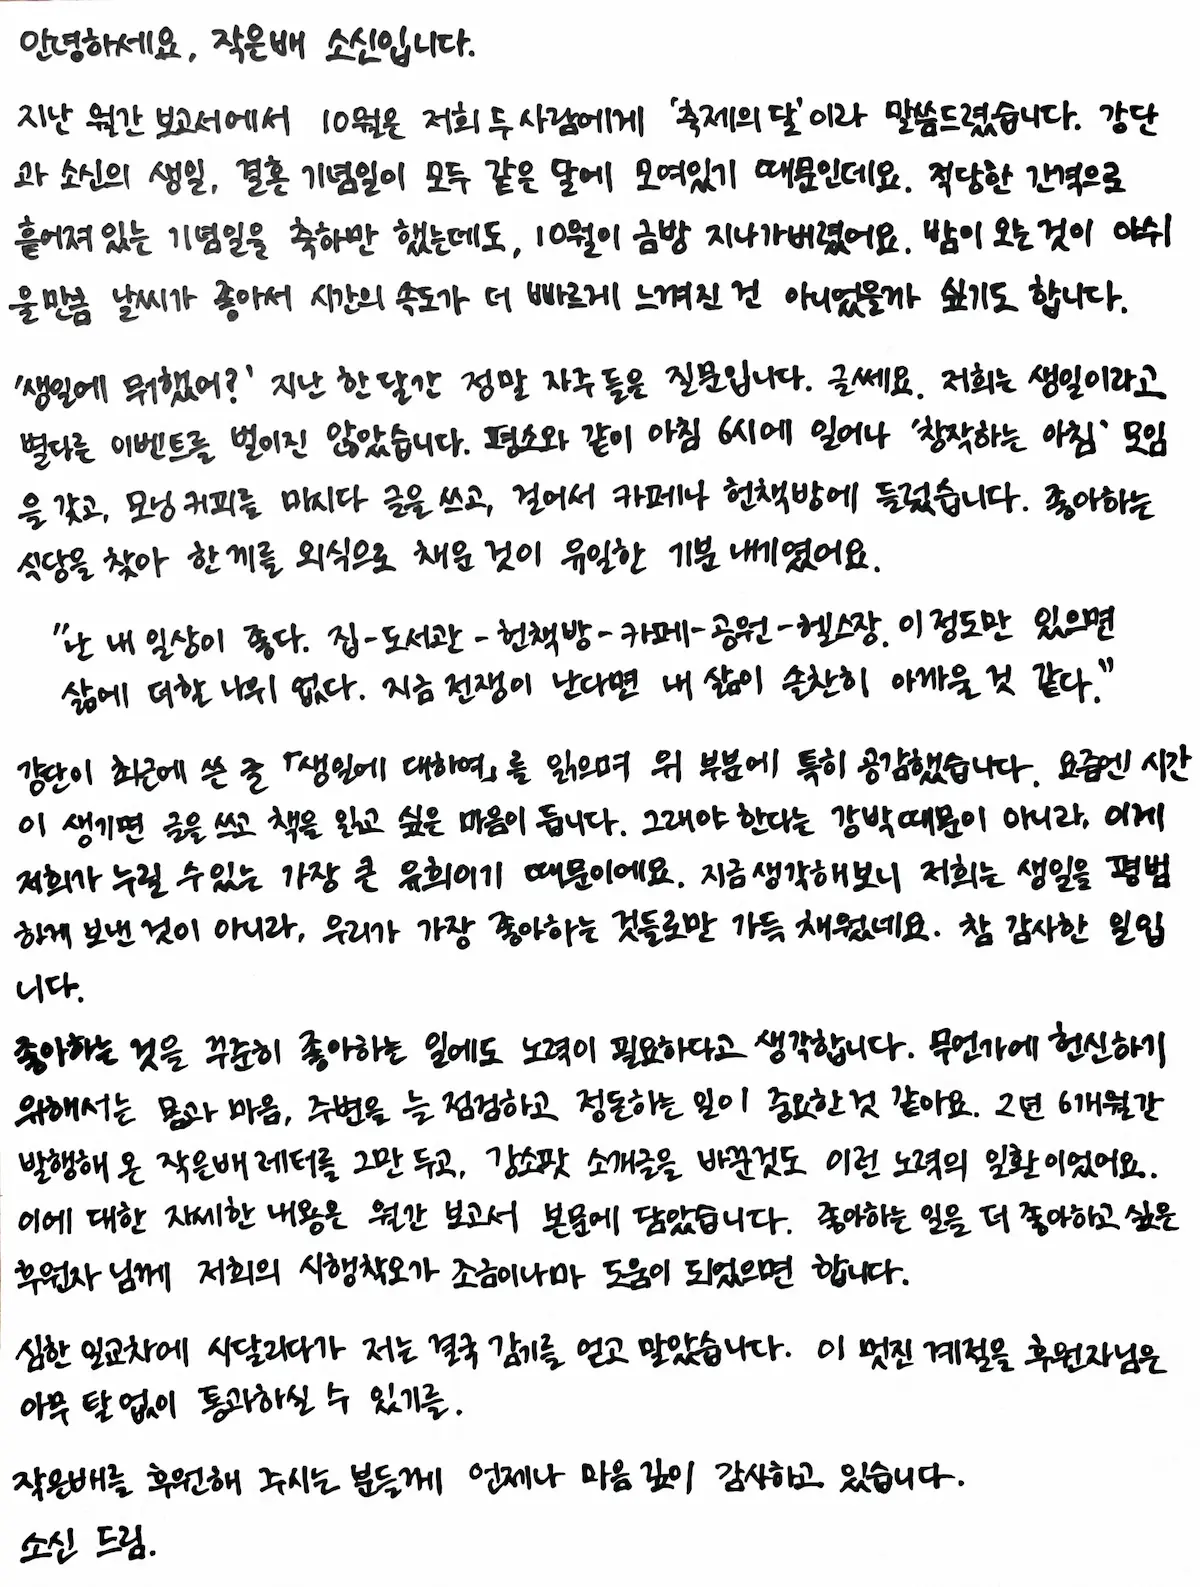 안녕하세요, 작은배 소신입니다.
지난 월간 보고서에서 10월은 저희 두 사람에게 '축제의 달'이라 말씀드렸습니다. 강단
과 소신의 생일, 결혼 기념일이 모두 같은 달에 모여있기 때문인데요. 적당한 간격으로
흩어져 있는 기념일을 축하만 했는데도, 10월이 금방 지나가버렸어요. 밤이 오는 것이 아쉬
울만큼 날씨가 좋아서 시간의 속도가 더 빠르게 느껴진 건 아니었을까 싶기도 합니다.
'생일에 뭐했어?' 지난 한 달간 정말 자주 들은 질문입니다. 글쎄요. 저희는 생일이라고
별다른 이벤트를 벌이진 않았습니다. 평소와 같이 아침 6시에 일어나 '창작하는 아침' 모임
을 갖고, 모닝 커피를 마시다 글을 쓰고, 걸어서 카페나 헌책방에 들렀습니다. 좋아하는
식당을 찾아 한 끼를 외식으로 채운 것이 유일한 기분 내기였어요.
"난 내 일상이 좋다. 집-도서관-헌책방-카페-공원-헬스장. 이 정도만 있으면
삶에 더할 나위 없다. 지금 전쟁이 난다면 내 삶이 솔찬히 아까울 것 같다."
강단이 최근에 쓴 글 「생일에 대하여」를 읽으며 위 부분에 특히 공감했습니다. 요즘엔 시간
이 생기면 글을 쓰고 책을 읽고 싶은 마음이 듭니다. 그래야 한다는 강박 때문이 아니라, 이게
저희가 누릴 수 있는 가장 큰 유희이기 때문이에요. 지금 생각해보니 저희는 생일을 평범
하게 보낸 것이 아니라, 우리가 가장 좋아하는 것들로만 가득 채웠네요. 참 감사한 일입
니다.
좋아하는 것을 꾸준히 좋아하는 일에도 노력이 필요하다고 생각합니다. 무언가에 헌신하기
위해서는 몸과 마음, 주변을 늘 점검하고 정돈하는 일이 중요한 것 같아요. 2년 6개월간
발행해 온 작은배 레터를 그만 두고, 강소팟 소개글을 바꾼것도 이런 노력의 일환이었어요.
이에 대한 자세한 내용은 월간 보고서 본문에 담았습니다. 좋아하는 일을 더 좋아하고 싶은
후원자 님께 저희의 시행착오가 조금이나마 도움이 되었으면 합니다.
심한 일교차에 시달리다가 저는 결국 감기를 얻고 말았습니다. 이 멋진 계절을 후원자님은
아무 탈 없이 통과하실 수 있기를.
작은배를 후원해 주시는 분들께 언제나 마음 깊이 감사하고 있습니다.
소신 드림.